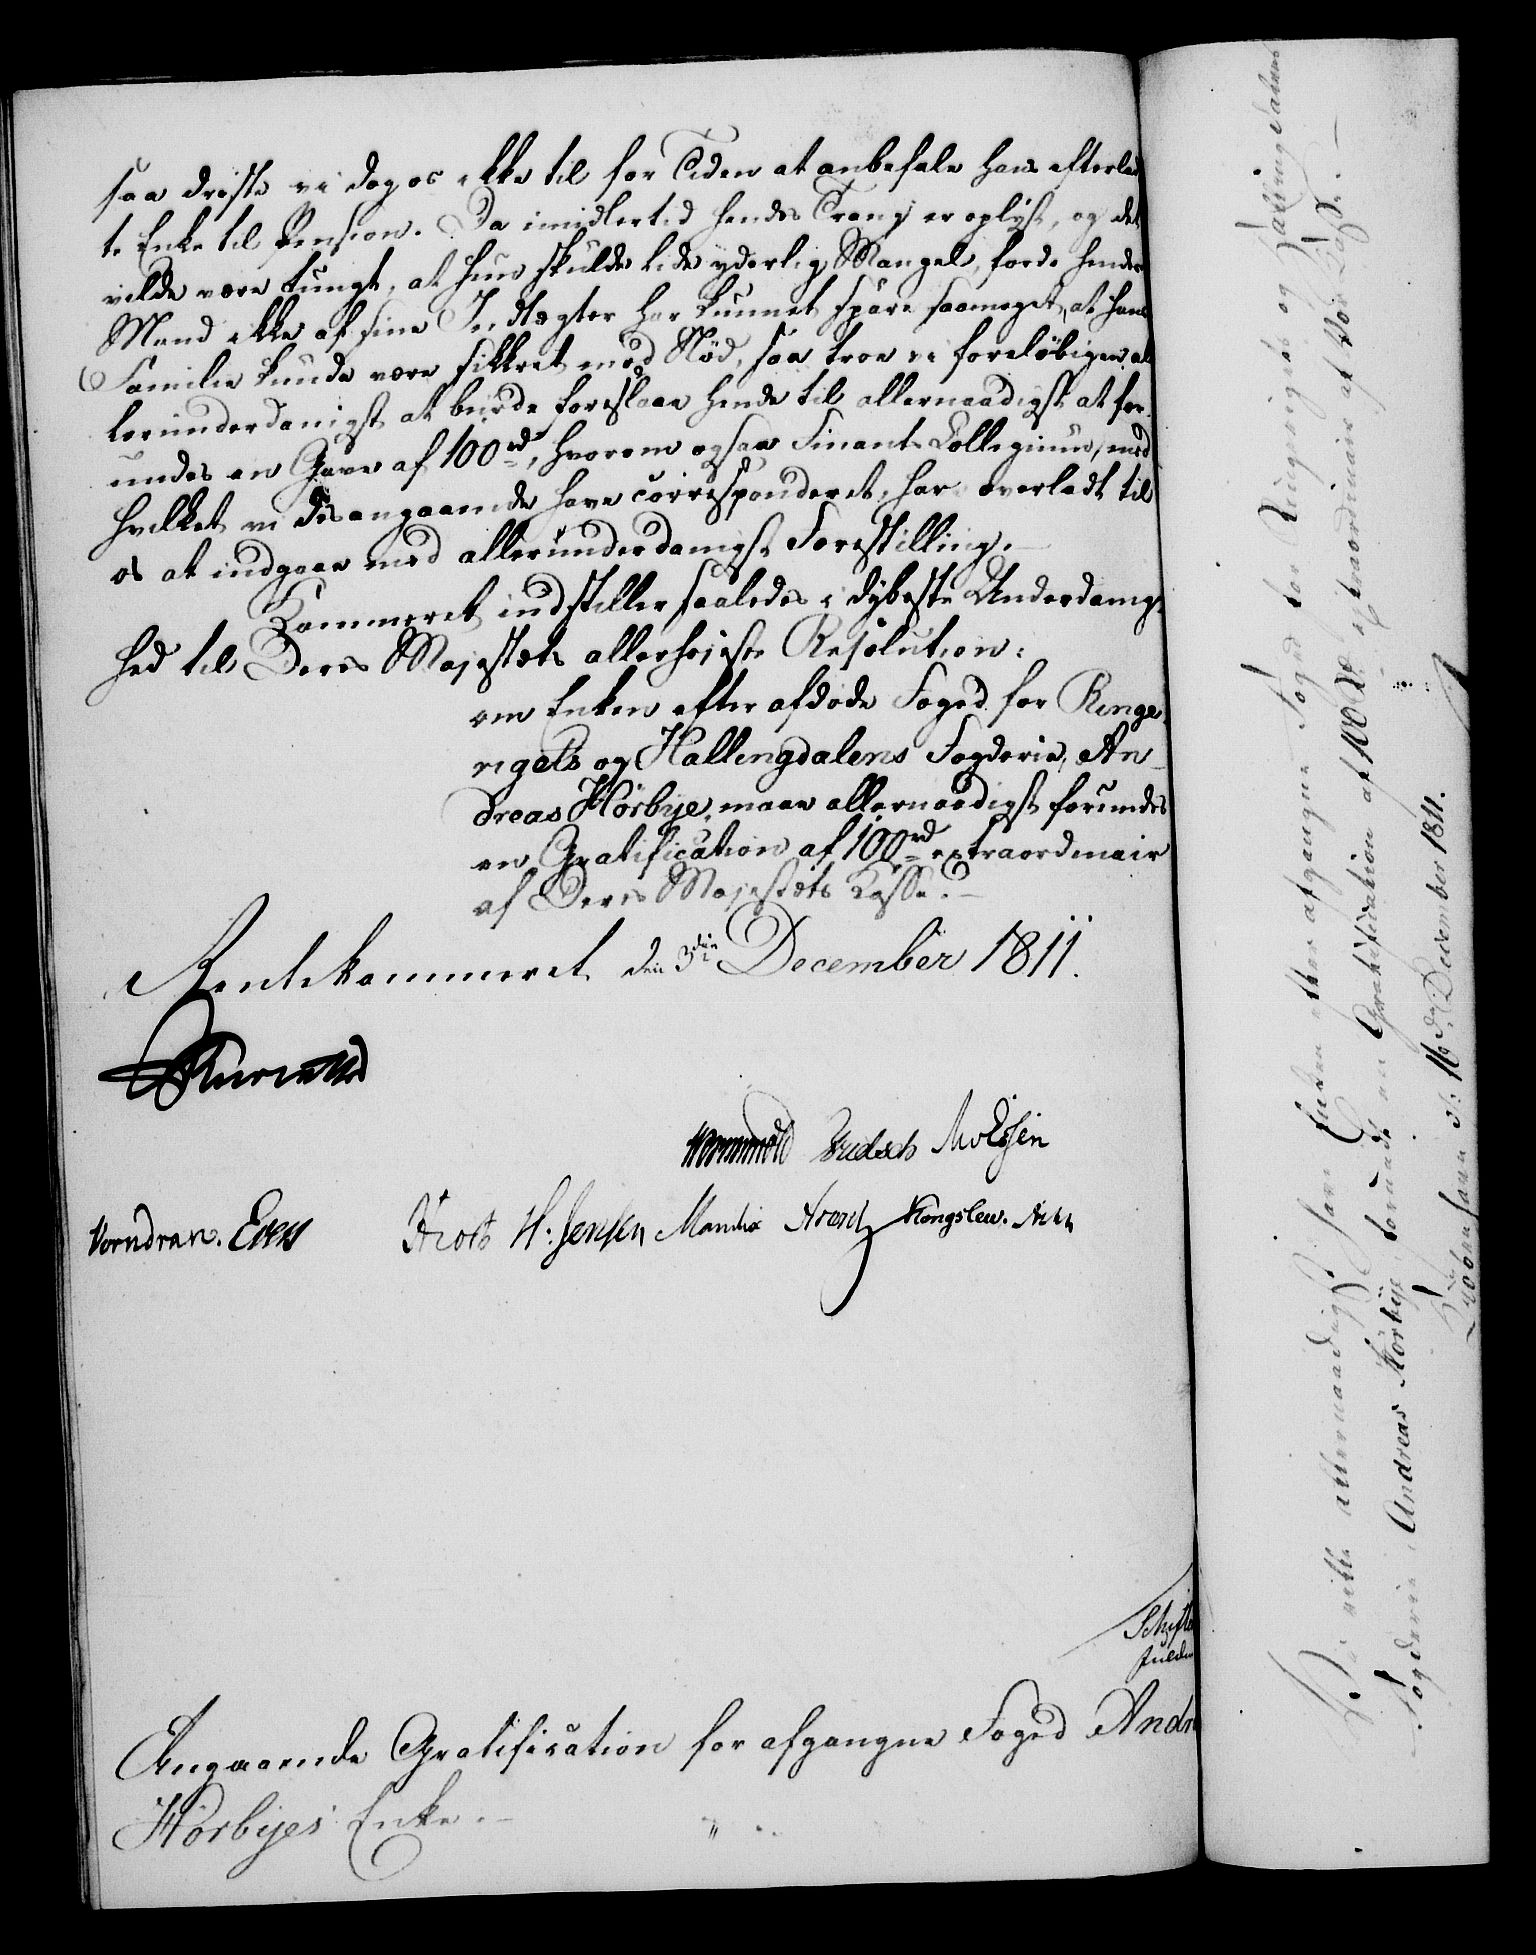 saa drøste vi dog os ikke til for Tiden at anbefale hans efterlad
te Enke til Pension. Da imidlertid hendes Trang er oplÿst, og det
vilde være tungt, at hun skulde lide yderlig Mangel, fordi hendes
Mand ikke af sine Indtægter har kunnet spare saameget, at hans
Familie kunde være sikkret mod Nöd, saa troe vi foreløbigen al
lerunderdanigst at burde foreslaae hende til allernaadigst at for-
undes en Gave af 100 rd, hvorom ogsaa Finants Collegium, med
hvilket vi desangaaende have corresponderet, har overladt til
os at indgaae med allerunderdanigst Forestilling.
Kammeret indstiller saaledes i dÿbeste Underdanig-
hed til Deres Majestæts allerhøjeste Resolution:
om Enken efter afdøde Foged for Ringe-
rigets og Hallingdalens Fogderie, An-
dreas Hörbye, maae allernaadigst forundes
en Gratification af 100 rd extraordinair
af Deres Majestæts Kasse?
Rentekammeret den 3die December 1811.
Vorndran. Evers H. Jensen Kongslew.
Angaaende Gratification for afgangne Foged Andr
Hörbÿes Enke.
Vi ville allernaadigst have Enken efter afgangne Foged for Ringerigets og Hallingdalens
Fogderie Andreas Hörbÿe forundt en Gratification af 100 rd extraordinair af Vor Kasse.
Kiøbenhavn d: 16 dec December 1811.